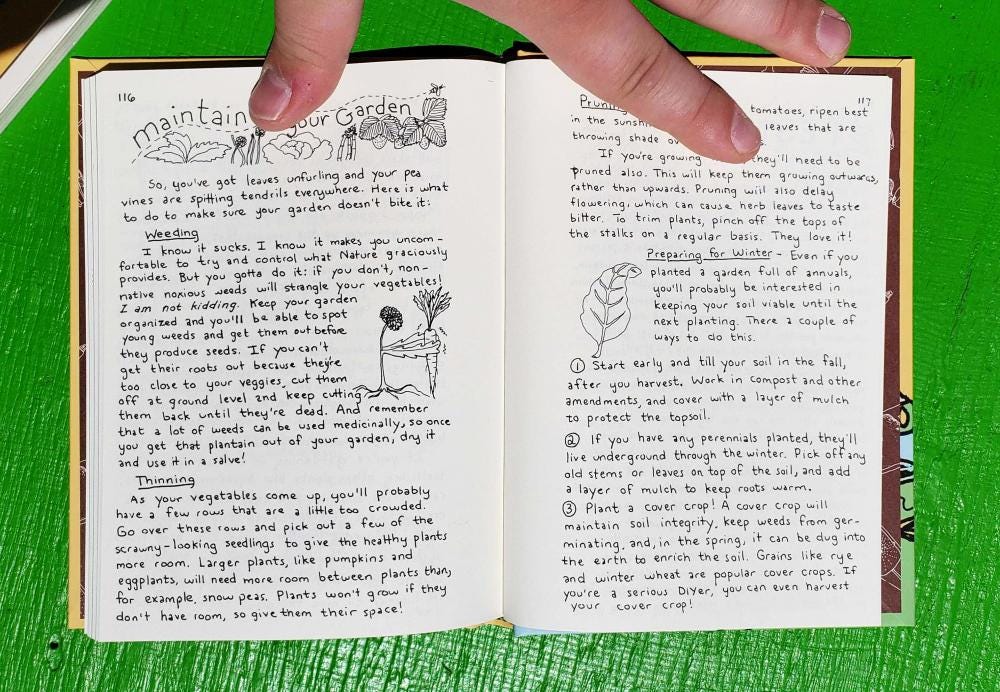 116
maintain your Garden
So, you've got leaves unfurling and your pea
vines are spitting tendrils everywhere. Here is what
to do to make sure your garden doesn't bite it:
Weeding
I know it sucks. I know it makes you uncom-
fortable to try and control what Nature graciously
provides. But you gotta do it: if you don't, non-
native noxious weeds will strangle your vegetables!
I am not kidding. Keep your garden
organized and you'll be able to spot
young weeds and get them out before
they produce seeds. If you can't
get their roots out because they're
too close to your veggies, cut them
off at ground level and keep cutting
them back until they're dead. And remember
that a lot of weeds can be used medicinally, so once
you get that plantain out of your garden, dry it
and use it in a salve!
Thinning
As your vegetables come up, you'll probably
have a few rows that are a little too crowded.
Go over these rows and pick out a few of the
scrawny-looking seedlings to give the healthy plants
more room. Larger plants, like pumpkins and
eggplants, will need more room between plants than,
for example, snow peas. Plants won't grow if they
don't have room, so give them their space!
117
Pruning tomatoes, ripen best
in the sunshi leaves that are
throwing shade ov
If you're growing they'll need to be
pruned also. This will keep them growing outwards,
rather than upwards. Pruning will also delay
flowering, which can cause herb leaves to taste
bitter. To trim plants, pinch off the tops of
the stalks on a regular basis. They love it!
Preparing for Winter - Even if you
planted a garden full of annuals,
you'll probably be interested in
keeping your soil viable until the
next planting. There a couple of
ways to do this.
① Start early and till your soil in the fall,
after you harvest. Work in compost and other
amendments, and cover with a layer of mulch
to protect the topsoil.
② If you have any perennials planted, they'll
live underground through the winter. Pick off any
old stems or leaves on top of the soil, and add
a layer of mulch to keep roots warm.
③ Plant a cover crop! A cover crop will
maintain soil integrity, keep weeds from ger-
minating, and, in the spring, it can be dug into
the earth to enrich the soil. Grains like rye
and winter wheat are popular cover crops. If
you're a serious DIYer, you can even harvest
your cover crop!